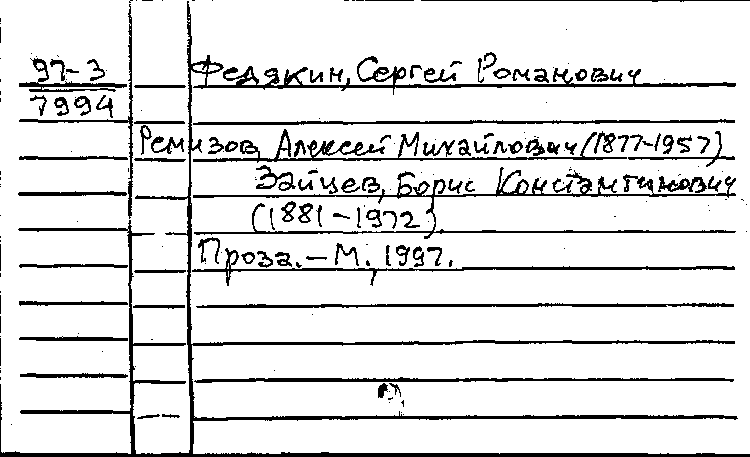 97-3 Федякин, Сергей Романович
7994
Ремизов, Алексей Михайлович (1877-1957)
Зайцев, Борис Константинович
(1881-1972).
Проза. - М., 1997.